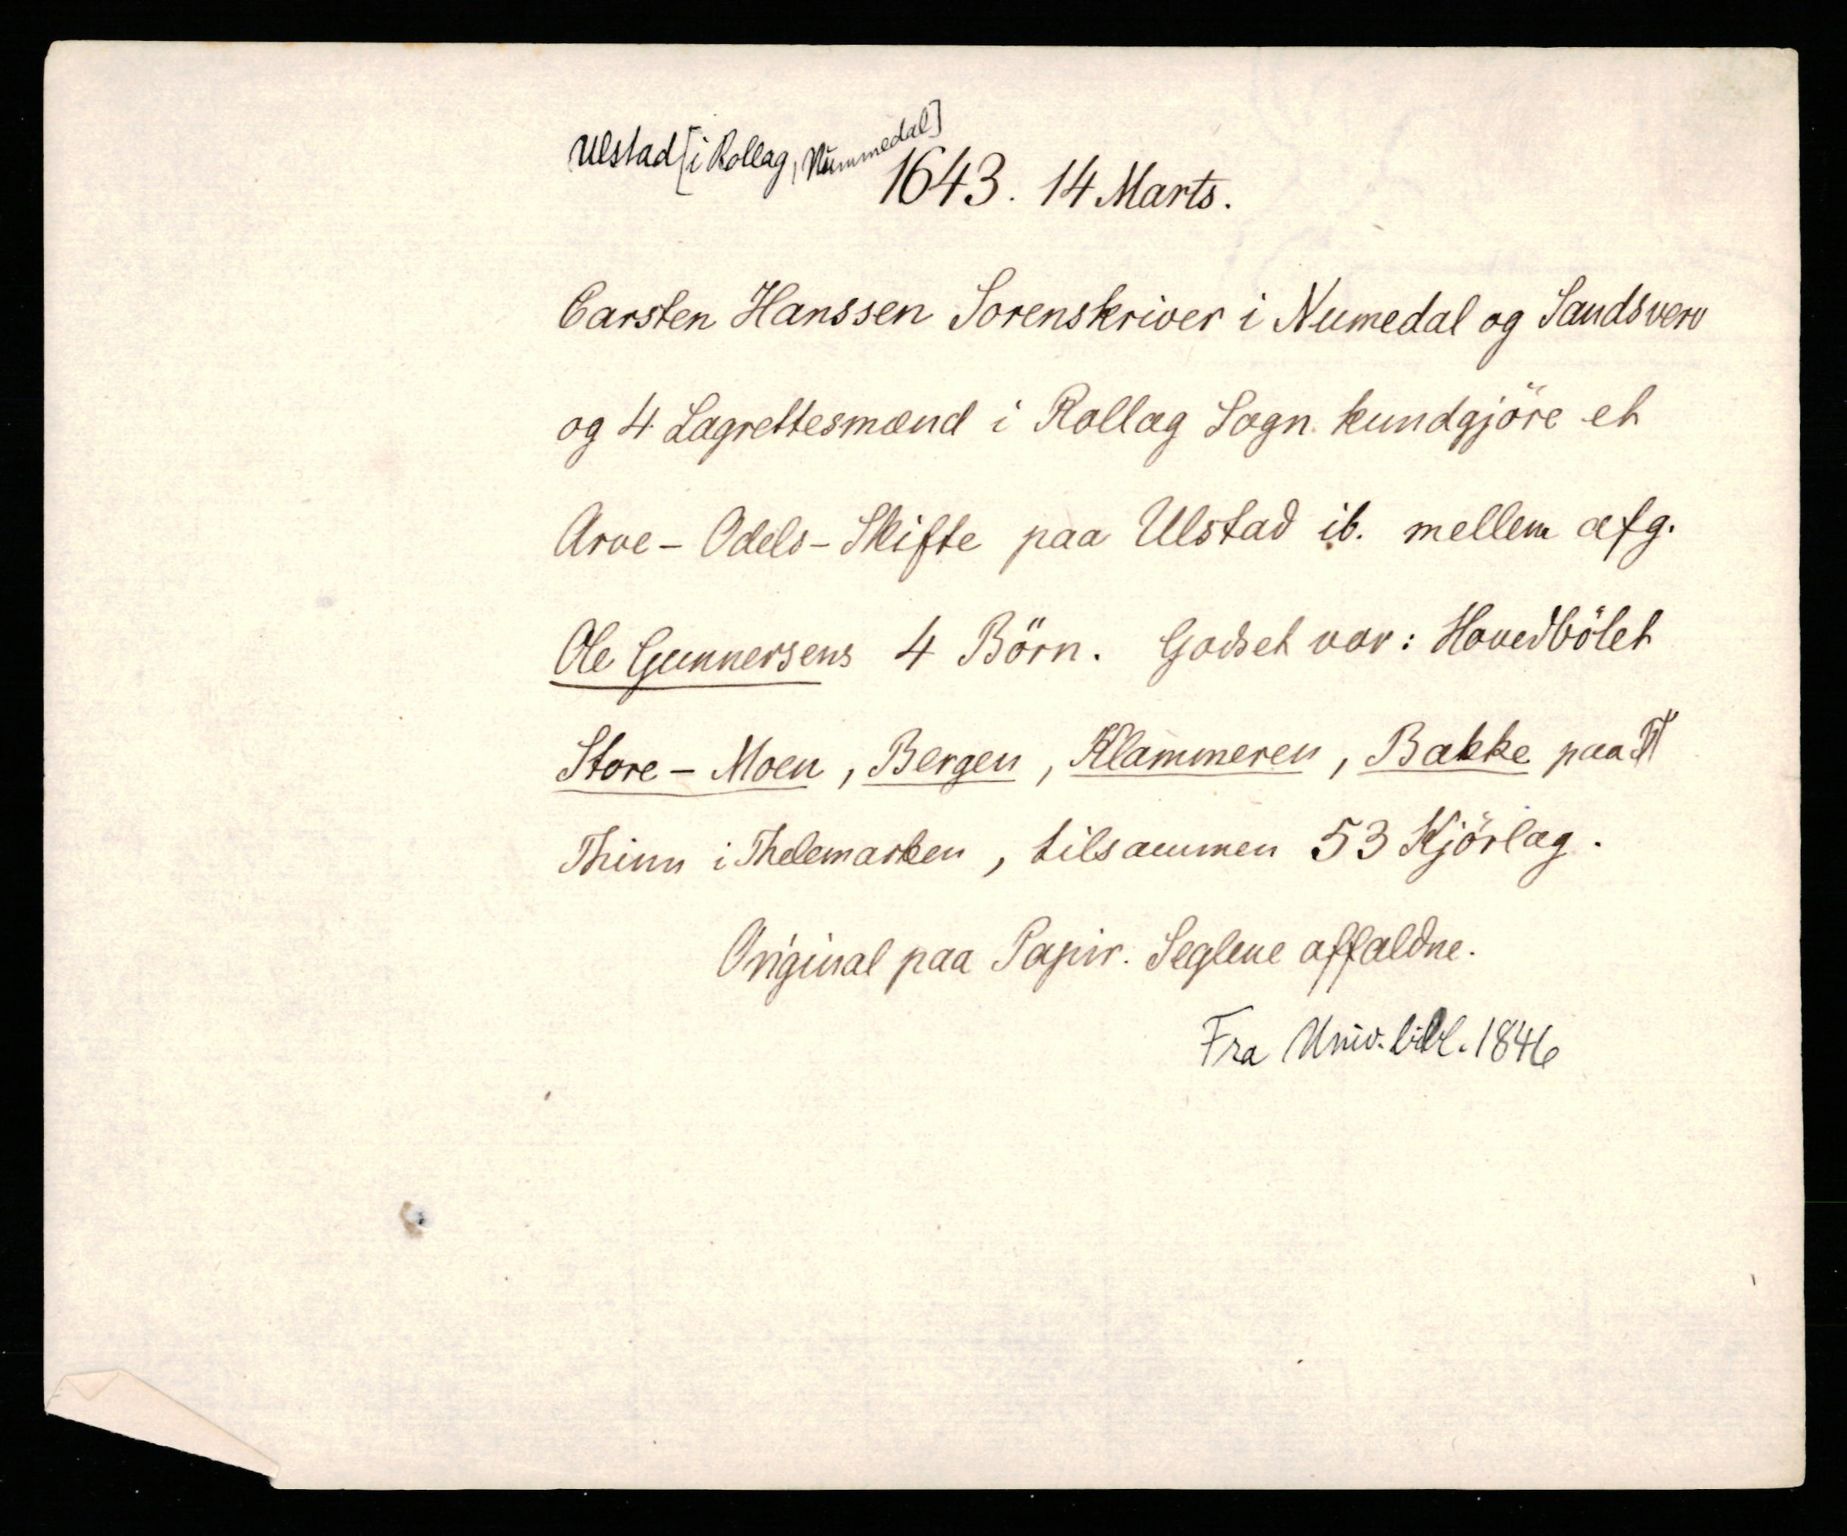 Ulstad [i Rollag, Nummedal]
1643. 14 Marts.
Carsten Hanssen Sorenskriver i Numedal og Sandsverv
og 4 Lagrettesmænd i Rollag Sogn kundgjöre et
Arve-Odels-Skifte paa Ulstad ib. mellem afg.
Ole Gunnersens 4 Börn. Godset var: Hovedbölet
Store-Moen, Bergen, Klammeren, Bakke paa
Thinn i Thelemarken, tilsammen 53 Kjörlag.
Original paa Papir. Seglene affaldne.
Fra Univ. bibl. 1846